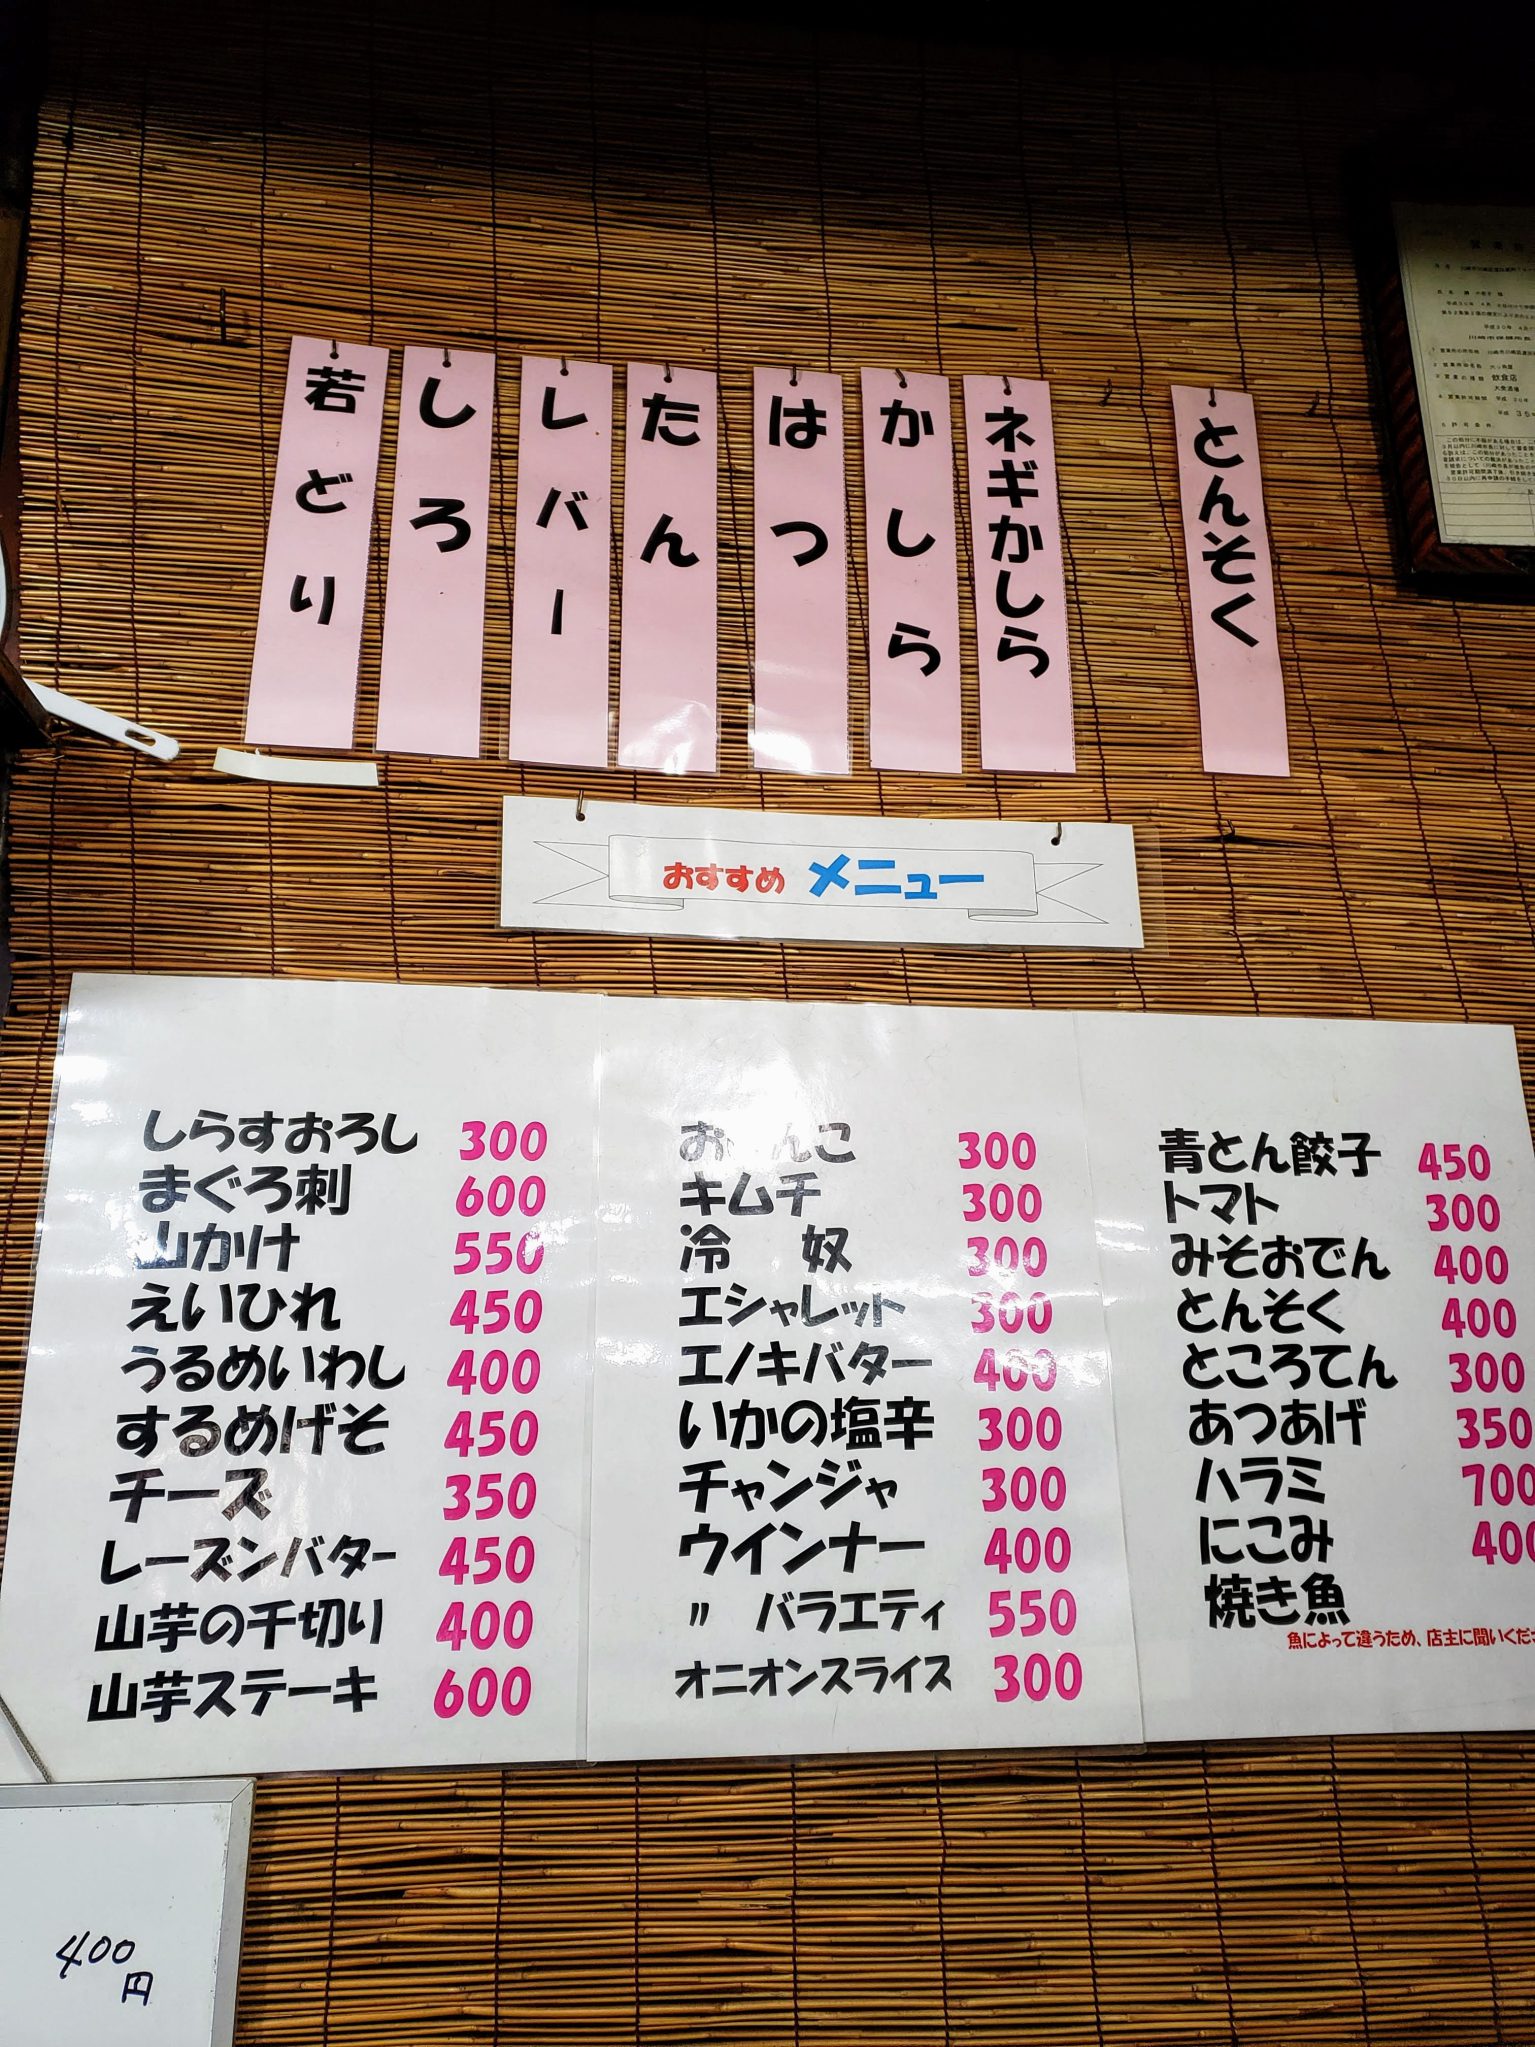 とんそく
ネギかしら
かしら
はつ
たん
レバー
しろ
若どり
おすすめ メニュー
しらすおろし 300
まぐろ刺 600
山かけ 550
えいひれ 450
うるめいわし 400
するめげそ 450
チーズ 350
レーズンバター 450
山芋の千切り 400
山芋ステーキ 600
300
キムチ 300
冷 奴 300
エシャレット 300
エノキバター 400
いかの塩辛 300
チャンジャ 300
ウインナー 400
〃 バラエティ 550
オニオンスライス 300
青とん餃子 450
トマト 300
みそおでん 400
とんそく 400
ところてん 300
あつあげ 350
ハラミ 700
にこみ 400
焼き魚
魚によって違うため、店主に聞いくださ
400
円
飲食店
大衆酒場